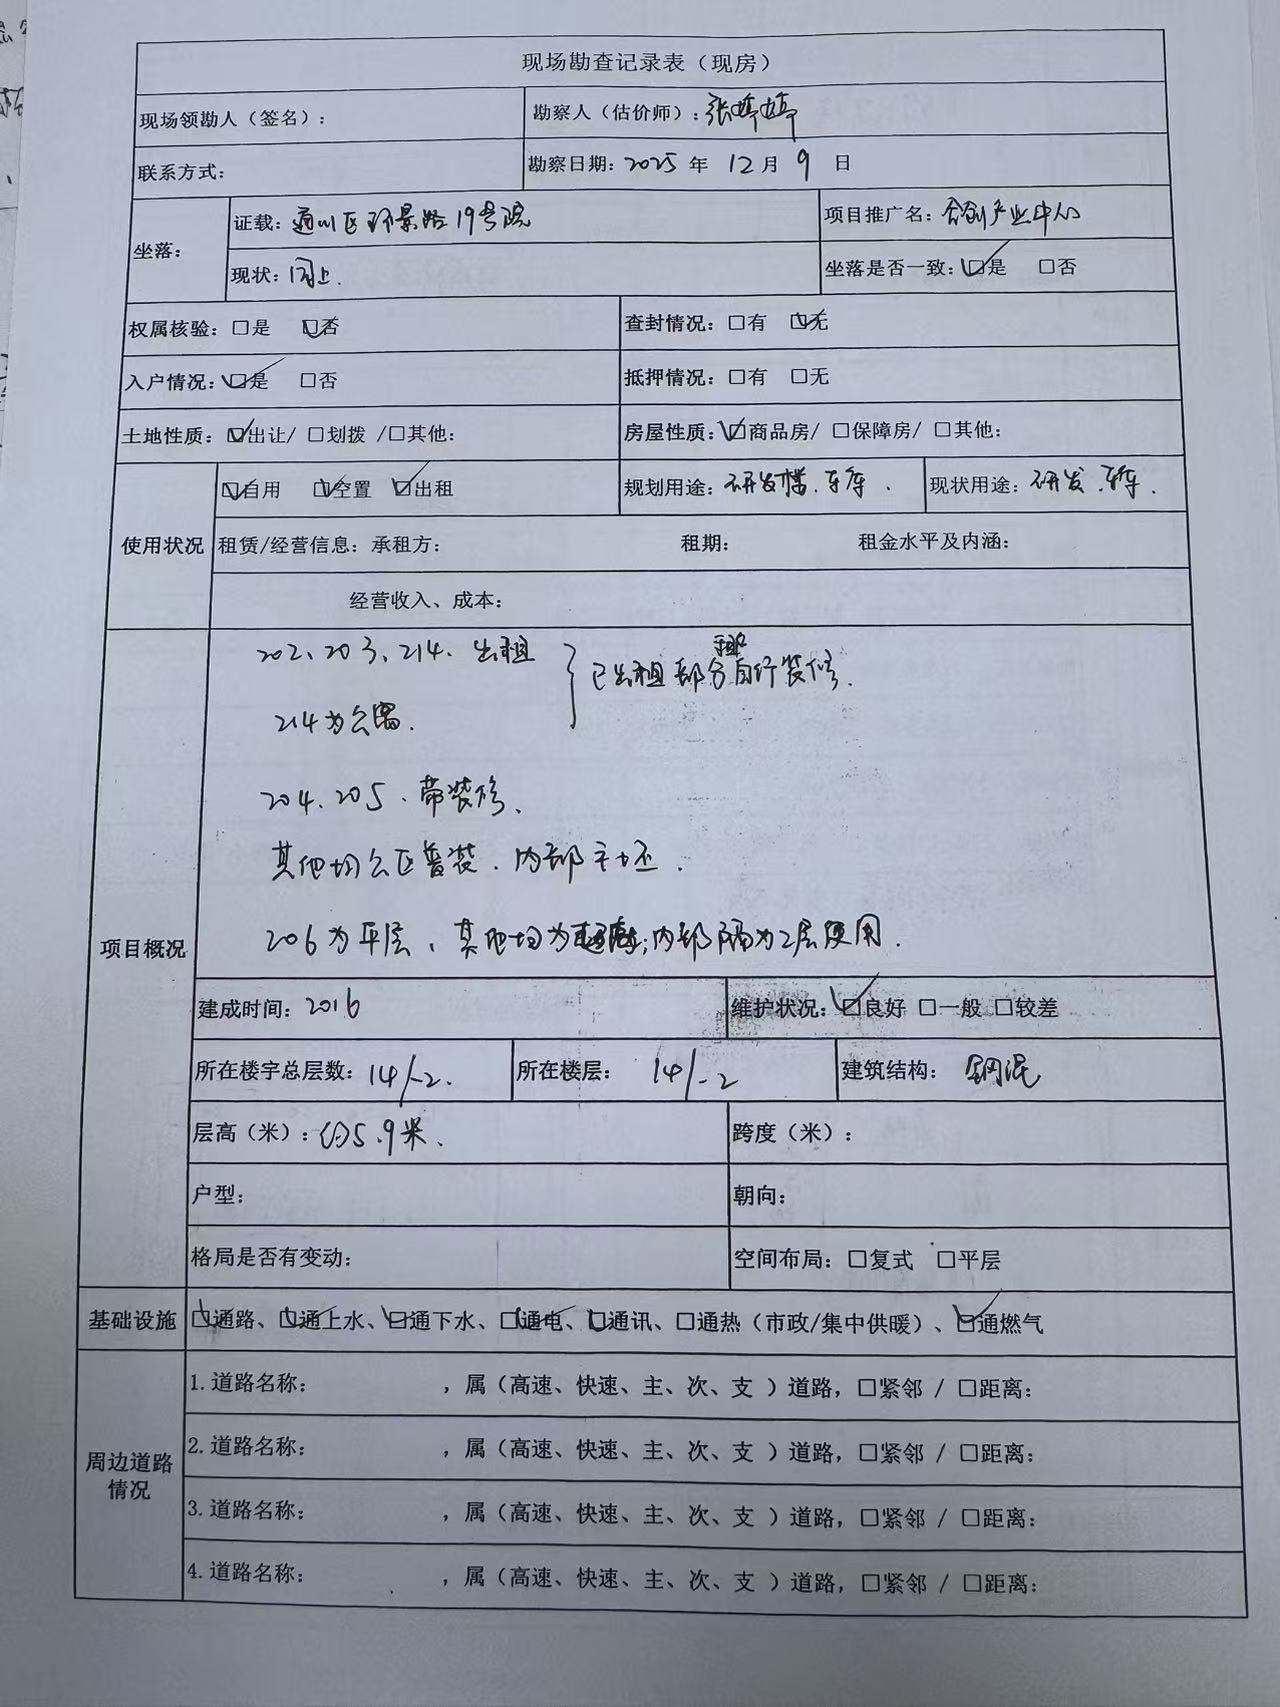 现场勘查记录表（现房）
现场领勘人（签名）：
勘察人（估价师）：张婷婷
联系方式：
勘察日期：2025 年 12 月 9 日
坐落：
证载：通州区环景路19号院
项目推广名：合创产业中心
现状：同上.
坐落是否一致：☑是 □否
权属核验：□是 ☑否
查封情况：□有 ☑无
入户情况：☑是 □否
抵押情况：□有 □无
土地性质：☑出让/ □划拨 /□其他：
房屋性质：☑商品房/ □保障房/ □其他：
使用状况
☑自用 ☑空置 ☑出租
规划用途：研发楼、车库.
现状用途：研发、车库.
租赁/经营信息：承租方： 租期： 租金水平及内涵：
经营收入、成本：
项目概况
202、203、214、出租
已出租部分自行装修.
214为公寓.
204、205、带装修、
其他均公区普装、内部毛坯.
206为平层、其他均为;内部隔为2层使用.
建成时间：2016
维护状况：☑良好 □一般 □较差
所在楼宇总层数：14/-2.
所在楼层： 14/-2
建筑结构： 钢混
层高（米）：约5.9米.
跨度（米）：
户型：
朝向：
格局是否有变动：
空间布局：□复式 □平层
基础设施
☑通路、☑通上水、☑通下水、☑通电、☑通讯、□通热（市政/集中供暖）、☑通燃气
周边道路
情况
1.道路名称： ，属（高速、快速、主、次、支 ）道路，□紧邻 / □距离：
2.道路名称： ，属（高速、快速、主、次、支 ）道路，□紧邻 / □距离：
3.道路名称： ，属（高速、快速、主、次、支 ）道路，□紧邻 / □距离：
4.道路名称： ，属（高速、快速、主、次、支 ）道路，□紧邻 / □距离：